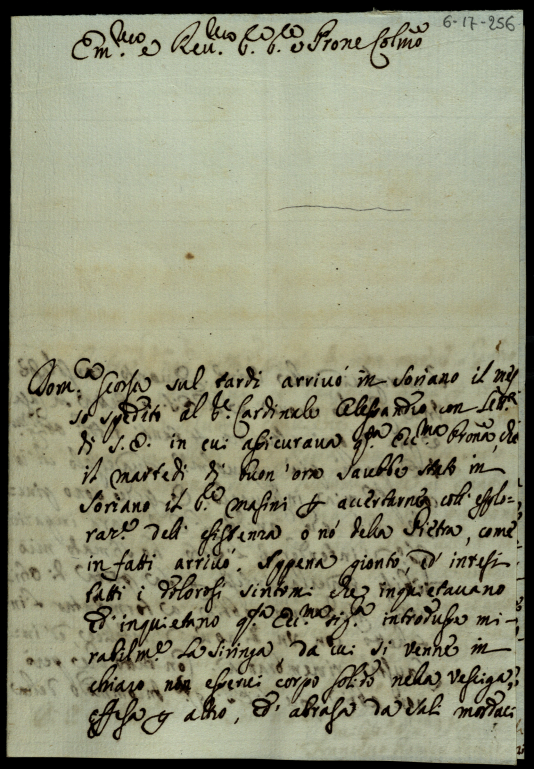 6-17-256
Em.mo e Rev.mo S.r S.r e Prone Colmo
Dom.ca scorsa sul tardi arrivò in Soriano il mes
so spedito al S.r Cardinale Alessandro con Lett.a
di S.E. in cui assicurava q.sta Ecc.ma Prona, che
il martedi di buon'ora sarebbe stato in
Soriano il S.r Masini p accertarne coll'esplo-
raz.e dell'esistenza o nò della Pietra, come
in fatti arrivò. Appena gionto, ed intesi
tutti i dolorosi sintomi che inquietavano
ed inquietano q.sta Ecc.ma Sig.ra introdusse mi-
rabilm.e la siringa da cui si venne in
chiaro non esserci corpo solido nella vesciga,
offesa p altro, ed abrasa da sali mordaci